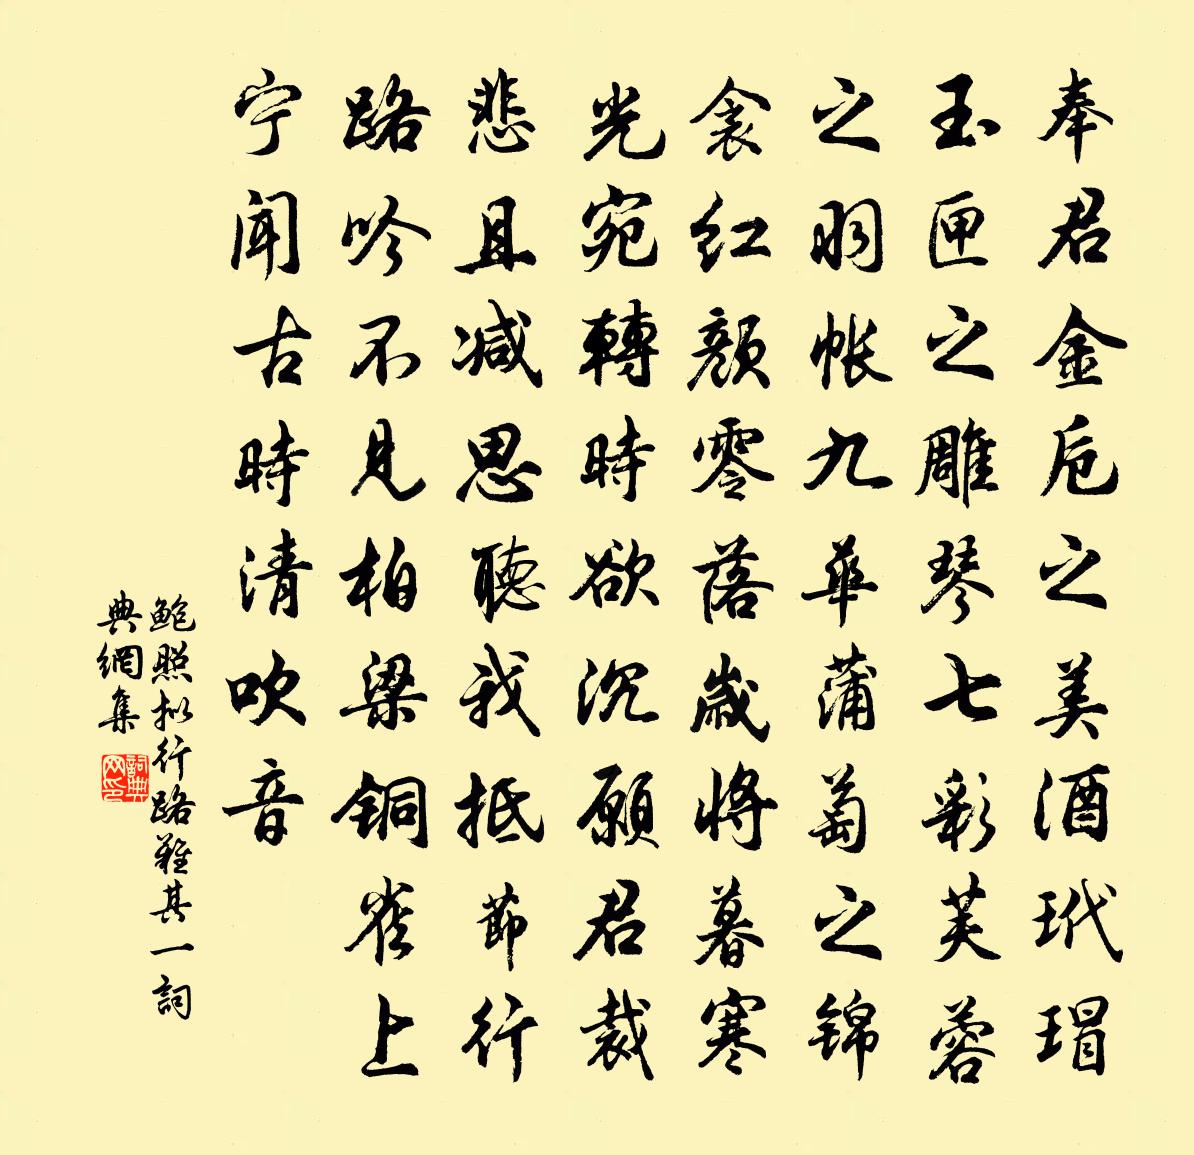 奉君金卮之美酒玳瑁
玉匣之雕琴七彩芙蓉
之羽帐九華蒲萄之锦
衾红颜零落歲将暮寒
光宛轉時欲沉願君裁
悲且减思聽我抵節行
路吟不見柏梁铜雀上
宁聞古時清吹音
鲍照拟行路難其一詞
典網集
詞典
网印